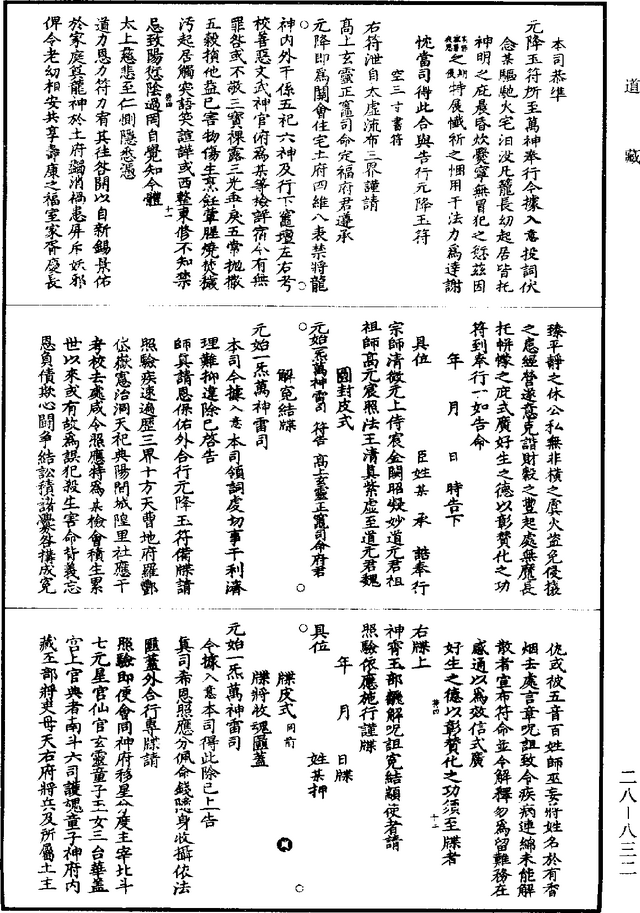 道藏
本司恭準
元降玉符所至萬神奉行今據入意投詞伏
念某驅馳火宅汨没凡籠長幼起居皆托
神明之庇晨昏炊爨寧無冒犯之愆茲因
之特展懺祈之悃用干法力爲達謝
忱當司得此合與告行元降玉符
空三寸書符
右符泄自太虚流布三界謹請
高上玄靈正竈司命定福府君遵承
元降即爲關會住宅土府四維八表禁將龍
神内外干係五祀六神及行下竈壇左右考
校善惡文武神官俯爲某等檢詳宿今有無
罪咎或不敬三寶裸露三光乖戾五常抛撒
五穀損他益己害物傷生烹飪葷腥燒焚穢
污起居觸突語笑諠譁或西整東修不知禁
忌致陽愆陰過罔自覺知今體
太上慈悲至仁惻隱悲憑
道力恩力符力宥其往咎開以自新錫景佑
於家庭奠龍神於土府蠲消禍患屏斥妖邪
俾令老幼相安共享壽康之福室家胥慶長
臻平靜之休公私無非橫之虞火盜免侵擾
之患經營遂意克諧財穀之豐起處無魔長
托帡幪之庇式廣好生之德以彰贊化之功
符到奉行一如告命
年 月 日 時告下
具位 臣姓某 承 誥奉行
宗師清微元上侍宸金闕昭凝妙道元君祖
祖師高元宸照法王清真紫虚至道元君魏
圓封皮式
元始一炁萬神雷司 符告 高上玄靈正竈司命府君
解冤結牒
元始一炁萬神雷司
本司今據入意本司領詞虔切事干利濟
理難抑違除已啓告
師真請恩保佑外合行元降玉符備牒請
照驗疾速遍歷三界十方天曹地府羅酆
岱嶽憲治洞天祀典陽間城隍里社應干
考校去處咸令照應特爲某檢會積生累
世以來或有故爲誤犯殺生害命背義忘
恩負債欺心鬪争結訟積諸釁咎構成冤
仇或被五音百姓師巫妄將姓名於有香
烟去處言章呪詛致令疾病連綿未能解
散者宣布符命並令解釋勿爲留難務在
感通以爲效信式廣
好生之德以彰贊化之功須至牒者
右牒上
神霄玉部 解呪詛冤結 使者請
照驗依應施行謹牒
年 月 日牒
具位 姓某押
牒皮式 同前
牒將收魂匾蓋
元始一炁萬神雷司
今據入意本司得此除已上告
真司希恩照應分佩命錢隱身收攝依法
匾蓋外合行專牒請
照驗即便會同神府移星分度主宰北斗
七元星官仙官玄靈童子玉女三台華蓋
宫上官典者南斗六司護魂童子神府内
藏玉部將吏母天右府將兵及所屬土主
二八—八三二